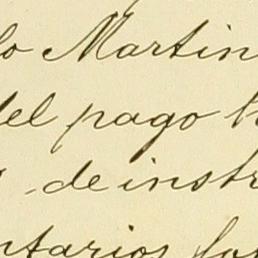 lo Martin
del pago
de instr
ntarios